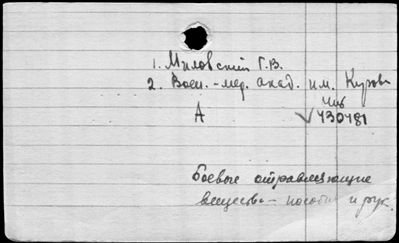 1. Миловский Г.В.
2. Воен.-мед. акад. им. Кирова
А
430481
Боевые отравляющие
вещества - пособия и рук.